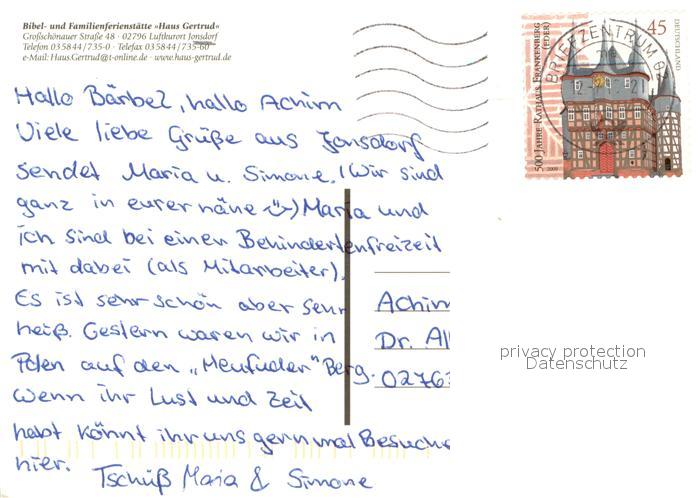 Bibel- und Familienferienstätte »Haus Gertrud«
Großschönauer Straße 48 · 02796 Luftkurort Jonsdorf
Telefon 035844/735-0 · Telefax 035844/735-60
e-Mail: Haus.Gertrud@t-online.de · www.haus-gertrud.de
500 JAHRE RATHAUS FRANKENBERG (EDER)
45
DEUTSCHLAND
2009
BRIEFZENTRUM
Hallo Bärbel, hallo Achim
Viele liebe Grüße aus Jonsdorf
sendet Maria u. Simone. (Wir sind
ganz in eurer näne ☺) Maria und
ich sind bei einen Behindertenfreizeit
mit dabei (als Mitarbeiter).
Es ist sehr schön aber sehr
heiß. Gestern waren wir in
Polen auf den „Meufuder" Berg.
Wenn ihr Lust und Zeit
habt könnt ihr uns gern mal Besuche
hier.
Tschüß Maia & Simone
Achim
Dr. All
02763
privacy protection
Datenschutz